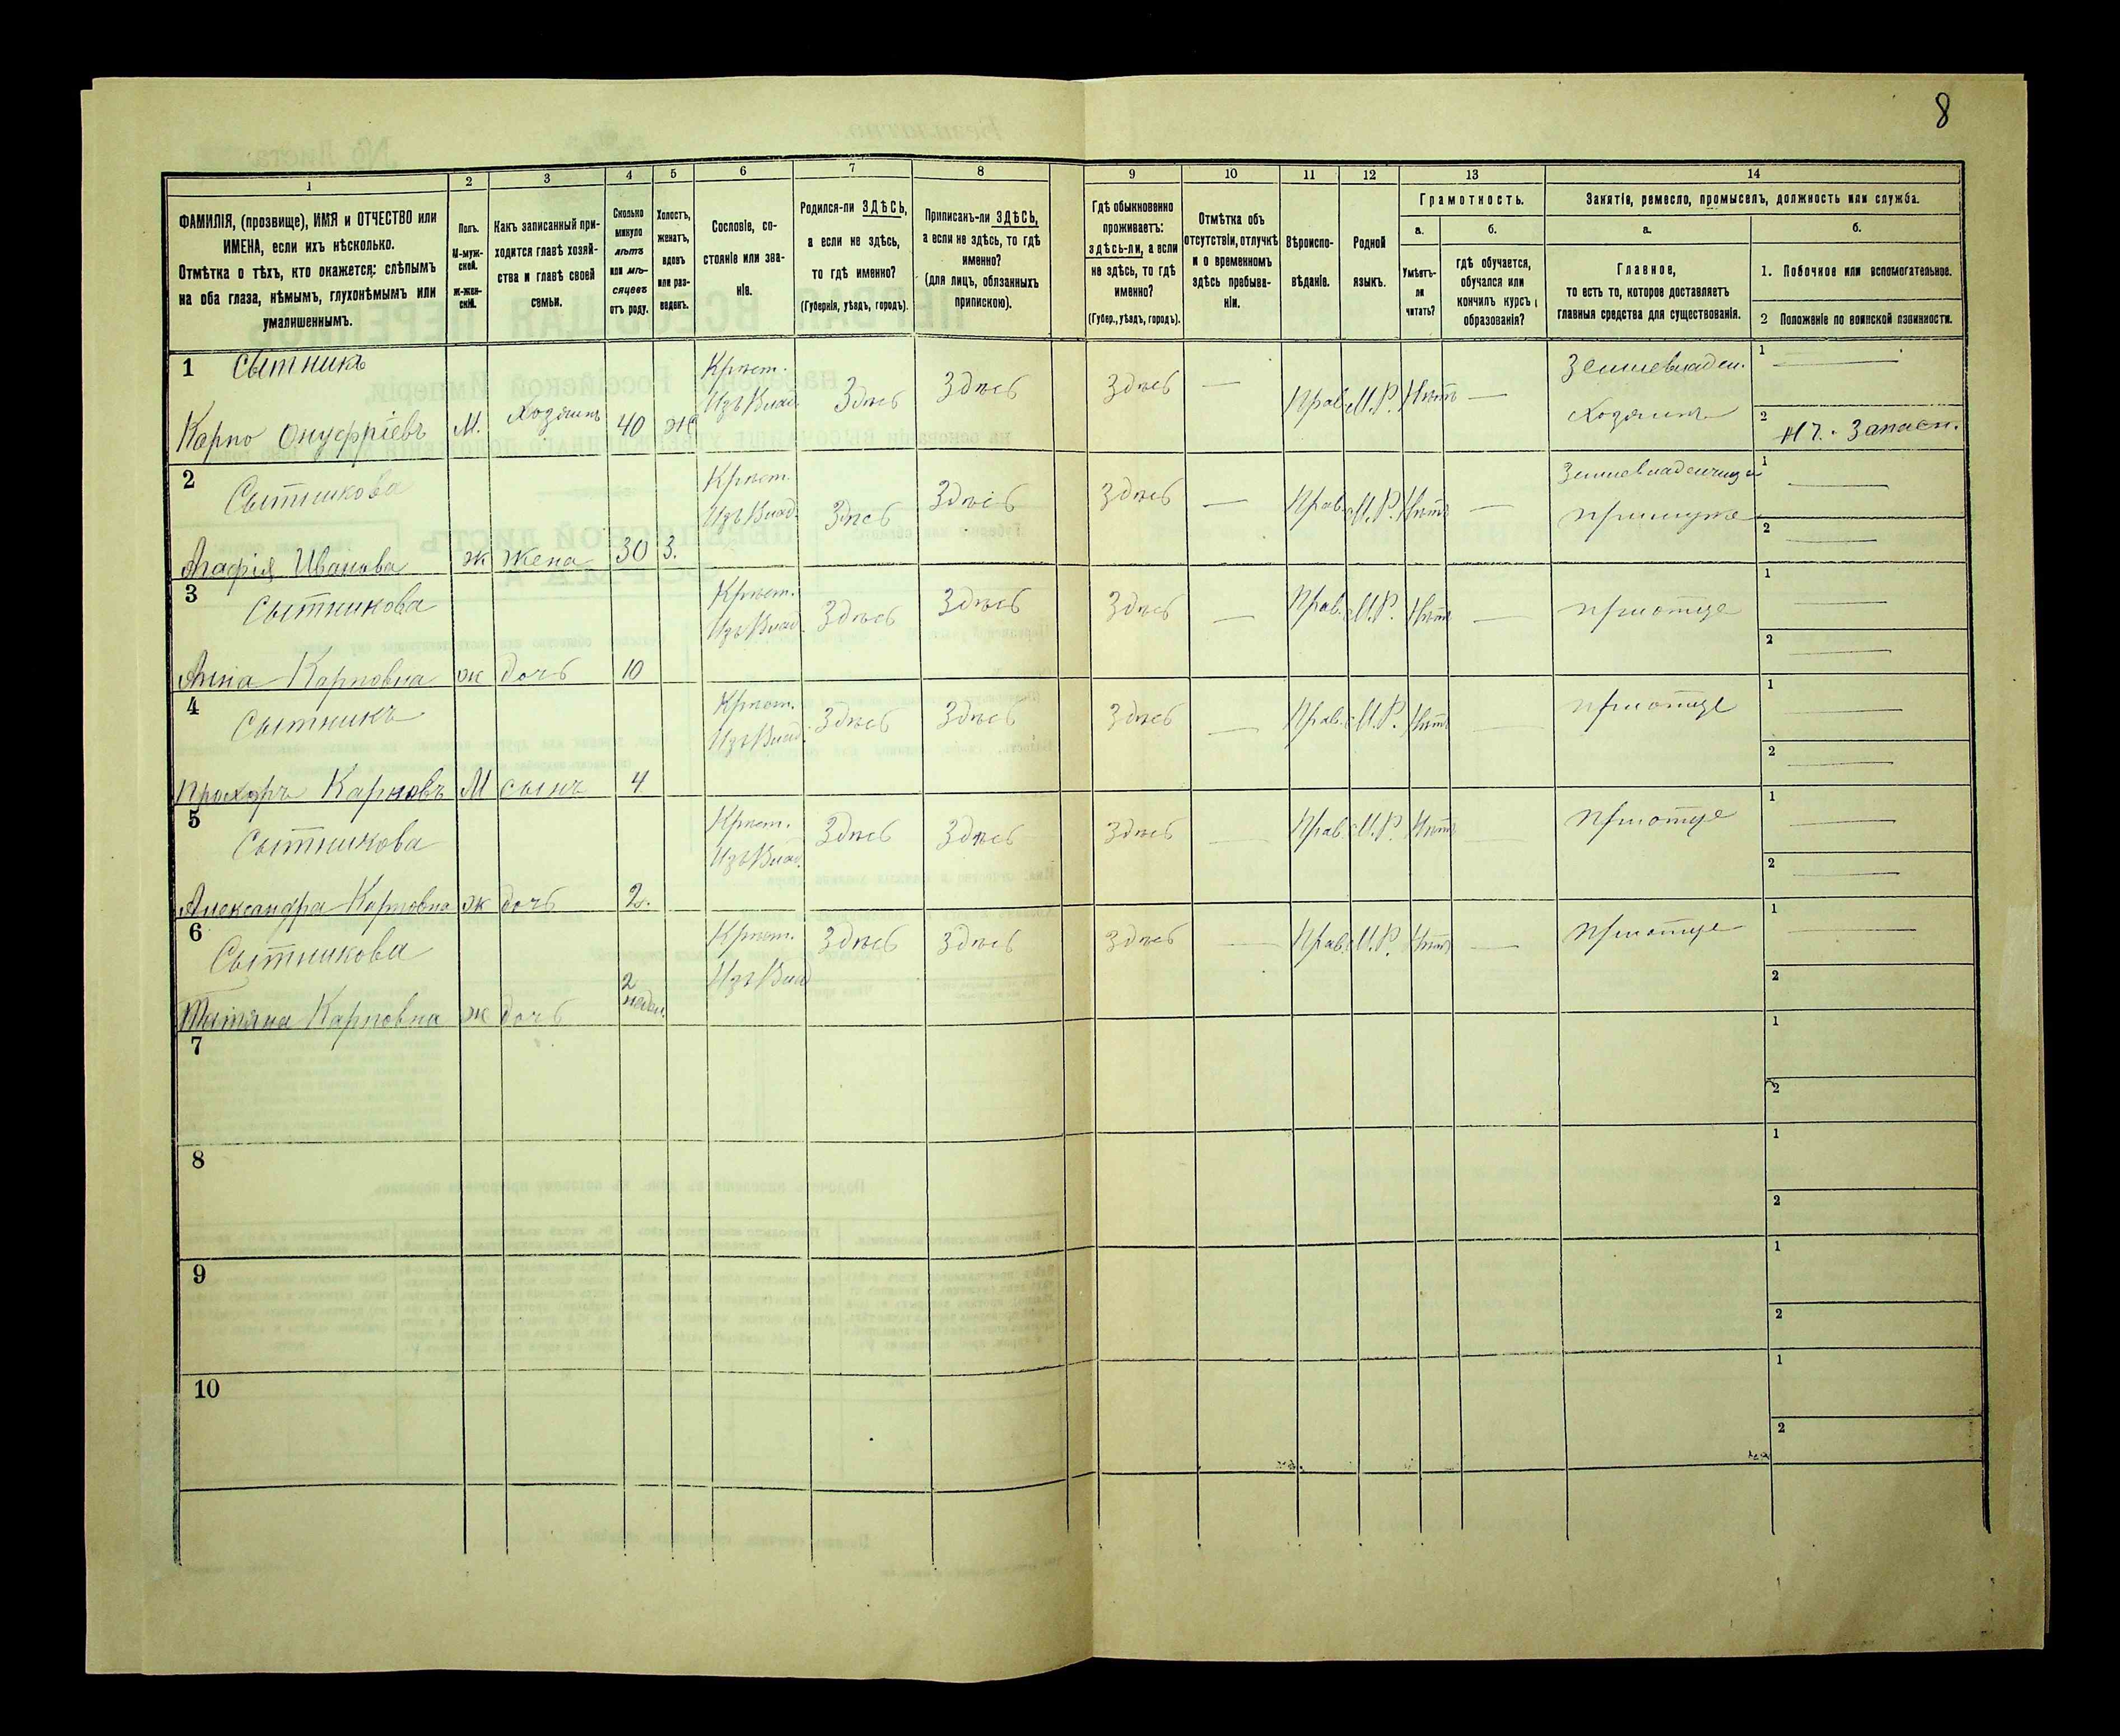 8
1
2
3
4
5
6
7
8
9
10
11
12
13
14
ФАМИЛІЯ, (прозвище), ИМЯ и ОТЧЕСТВО или
ИМЕНА, если ихъ нѣсколько.
Отмѣтка о тѣхъ, кто окажется: слѣпымъ
на оба глаза, нѣмымъ, глухонѣмымъ или
умалишеннымъ.
Полъ.
М-муж-
ской.
Ж-жен-
скій.
Какъ записанный при-
ходится главѣ хозяй-
ства и главѣ своей
семьи.
Сколько
минуло
лѣтъ
или мѣ-
сяцевъ
отъ роду.
Холостъ,
женатъ,
вдовъ
или раз-
веденъ.
Сословіе, со-
стояніе или зва-
ніе.
Родился-ли ЗДѢСЬ,
а если не здѣсь,
то гдѣ именно?
(Губернія, уѣздъ, городъ).
Приписанъ-ли ЗДѢСЬ,
а если не здѣсь, то гдѣ
именно?
(для лицъ, обязанныхъ
припискою).
Гдѣ обыкновенно
проживаетъ:
здѣсь-ли, а если
не здѣсь, то гдѣ
именно?
(Губер., уѣздъ, городъ).
Отмѣтка объ
отсутствіи, отлучкѣ
и о временномъ
здѣсь пребыва-
ніи.
Вѣроиспо-
вѣданіе.
Родной
языкъ.
Грамотность.
а.
Умѣетъ-
ли
читать?
б.
гдѣ обучается,
обучался или
кончилъ курсъ
образованія?
Занятіе, ремесло, промыселъ, должность или служба.
а.
Главное,
то есть то, которое доставляетъ
главныя средства для существованія.
б.
1. Побочное или вспомогательное.
2 Положеніе по воинской повинности.
1 Сытникъ
Карпо Онуфріевъ М. Хозяинъ 40 Ж Крѣст. Изъ Влад. Здѣсь Здѣсь Здѣсь — Прав. М.Р. Нѣтъ — Землевладѣл. Хозяинъ 1 — 2 Н ч. Запасн.
2 Сытникова
Агафія Иванова ж жена 30 З. Крѣст. Изъ Влад. Здѣсь Здѣсь Здѣсь — Прав. М.Р. Нѣтъ — при мужѣ 1 — 2 —
3 Сытникова
Анна Карповна ж дочь 10 Крѣст. Изъ Влад. Здѣсь Здѣсь Здѣсь — Прав. М.Р. Нѣтъ — при отцѣ 1 — 2 —
4 Сытникъ
Прохоръ Карповъ М сынъ 4 Крѣст. Изъ Влад. Здѣсь Здѣсь Здѣсь — Прав. М.Р. Нѣтъ — при отцѣ 1 — 2 —
5 Сытникова
Александра Карповна ж дочь 2. Крѣст. Изъ Влад. Здѣсь Здѣсь Здѣсь — Прав. М.Р. Нѣтъ — при отцѣ 1 — 2 —
6 Сытникова
Татяна Карповна ж дочь 2 недѣл. Крѣст. Изъ Влад Здѣсь Здѣсь Здѣсь — Прав. М.Р. Нѣтъ — при отцѣ 1 — 2
7 1 2
8 1 2
9 1 2
10 1 2